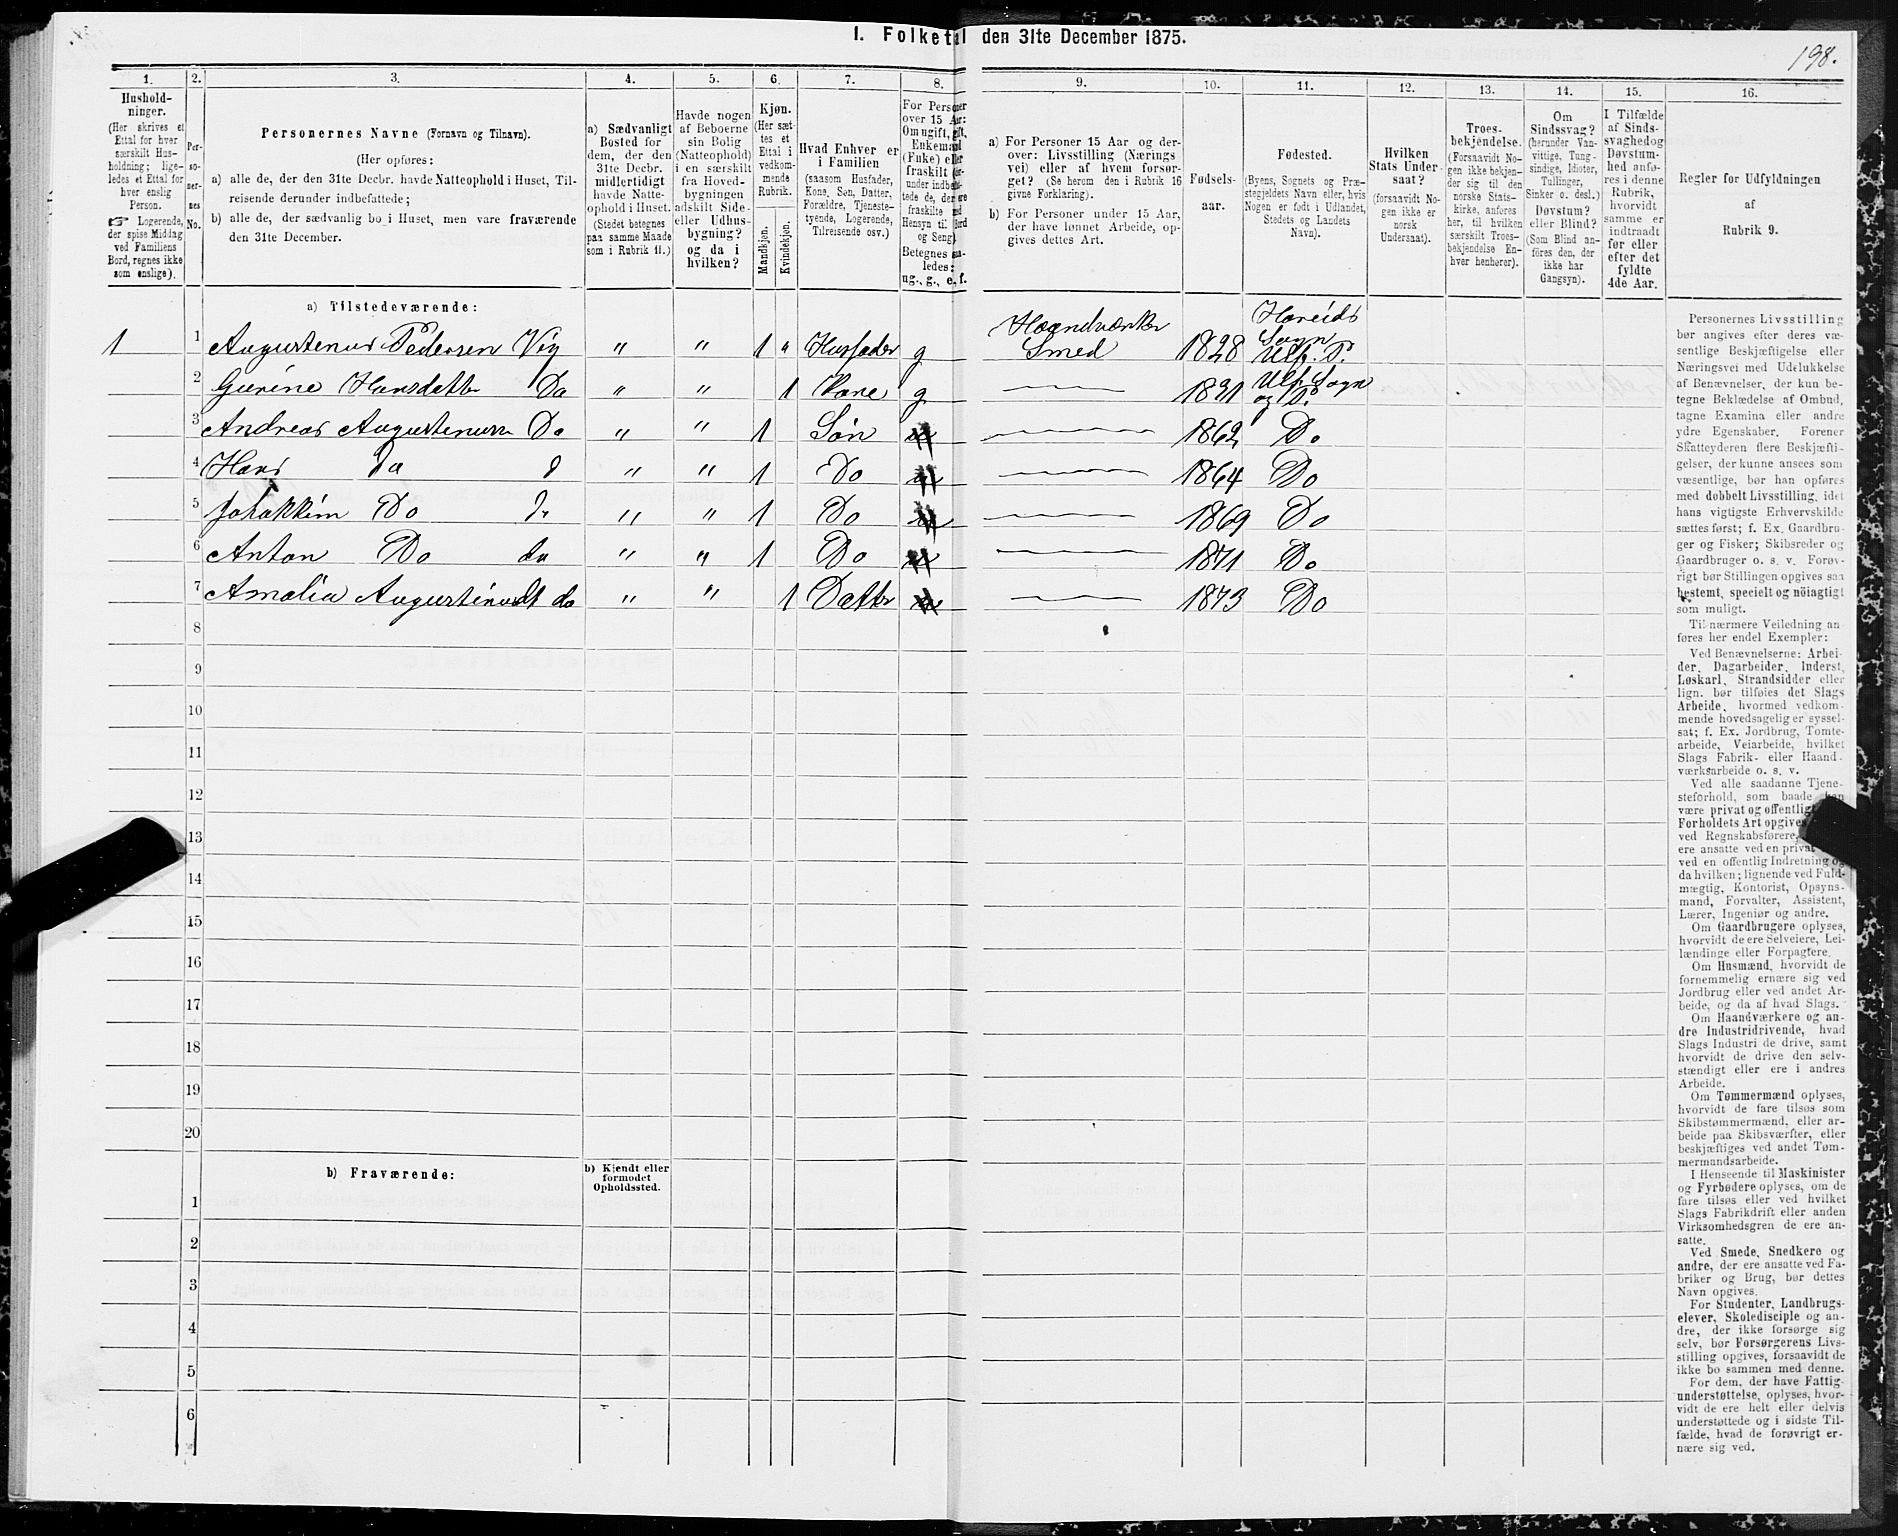 I. Folketal den 31te December 1875.
198.
1.
Hushold-
ninger.
(Her skrives et
Ettal for hver
særskilt Hus-
holdning; lige-
ledes et Ettal for
hver enslig
Person.
☞ Logerende,
der spise Middag
ved Familiens
Bord, regnes ikke
som enslige).
2.
Per-
so-
ner-
nes
No.
3.
Personernes Navne (Fornavn og Tilnavn).
(Her opføres:
a) alle de, der den 31te Decbr. havde Natteophold i Huset, Til-
reisende derunder indbefattede;
b) alle de, der sædvanlig bo i Huset, men vare fraværende
den 31te December.
4.
a) Sædvanligt
Bosted for
dem, der den
31te Decbr.
midlertidigt
havde Natte-
ophold i Huset.
(Stedet betegnes
paa samme Maade
som i Rubrik 11.)
5.
Havde nogen
af Beboerne
sin Bolig
(Natteophold)
i en særskilt
fra Hoved-
bygningen
adskilt Side-
eller Udhus-
bygning?
og da i
hvilken?
6.
Kjøn.
(Her sæt-
tes et
Ettal i
vedkom-
mende
Rubrik.
Mandkjøn.
Kvindekjøn.
7.
Hvad Enhver er
i Familien
(saasom Husfader,
Kone, Søn, Datter,
Forældre, Tjeneste-
tyende, Logerende,
Tilreisende osv.)
8.
For Personer
over 15 Aar:
Om ugift, gift,
Enkemand
(Enke) eller
fraskilt
Betegnes saa-
ledes:
ug., g., e. f.
9.
a) For Personer 15 Aar og der-
over: Livsstilling (Nærings
vei) eller af hvem forsør-
get? (Se herom den i Rubrik 16
givne Forklaring).
b) For Personer under 15 Aar,
der have lønnet Arbeide, op-
gives dettes Art.
10.
Fødsels-
aar.
11.
Fødested.
(Byens, Sognets og Præ-
stegjeldets Navn eller, hvis
Nogen er født i Udlandet,
Stedets og Landets
Navn).
12.
Hvilken
Stats Under-
saat?
(forsaavidt No-
gen ikke er
norsk
Undersaat).
13.
Troes-
bekjendelse.
(Forsaavidt No-
gen ikke bekjen-
der sig til den
norske Stats-
kirke, anføres
her, til hvilken
særskilt Troes-
bekjendelse En-
hver henhører).
14.
Om
Sindssvag?
(herunder Van-
vittige, Tung-
sindige, Idioter,
Tullinger,
Sinker o. desl.)
Døvstum?
eller Blind?
(Som Blind an-
føres den, der
ikke har
Gangsyn).
15.
I Tilfælde
af Sinds-
svaghed og
Døvstum-
hed anfø-
res i denne
Rubrik,
hvorvidt
samme er
indtraadt
før eller
efter det
fyldte
4de Aar.
16.
Regler for Udfyldningen
af
Rubrik 9.
a) Tilstedeværende:
1 1 Augustenus Pedersen Vig " " 1 " Husfader g Haandværker Smed 1828 Hareids Sogn Ulf. P.
2 Gurine Hansdatter Do " " 1 Kone g 1831 Ulf. Sogn og P.
3 Andreas Augustenusen Do " " 1 Søn 1862 Do
4 Hans Da d " " 1 Do 1864 Do
5 Johakkim Do do " " 1 Do 1869 Do
6 Anton Do do " " 1 Do 1871 Do
7 Amalia Augustinusdt do " " 1 Datter 1873 Do
8
9
10
11
12
13
14
15
16
17
18
19
20
b) Fraværende:
b) Kjendt eller
formodet
Opholdssted.
1
2
3
4
5
6
Personernes Livsstilling
bør angives efter deres væ-
sentlige Beskjæftigelse eller
Næringsvei med Udelukkelse
af Benævnelser, der kun be-
tegne Beklædelse af Ombud,
tagne Examina eller andre
ydre Egenskaber. Forener
Skatteyderen flere Beskjæfti-
gelser, der kunne ansees som
væsentlige, bør han opføres
med dobbelt Livsstilling, idet
hans vigtigste Erhvervskilde
sættes først; f. Ex. Gaardbru-
ger og Fisker; Skibsreder og
Gaardbruger o. s. v. Forøv-
rigt bør Stillingen opgives saa
bestemt, specielt og nöiagtigt
som muligt.
Til nærmere Veiledning an-
føres her endel Exempler:
Ved Benævnelserne: Arbei-
der, Dagarbeider, Inderst,
Løskarl, Strandsidder eller
lign. bør tilføies det Slags
Arbeide, hvormed vedkom-
mende hovedsagelig er syssel-
sat; f. Ex. Jordbrug, Tomte-
arbeide, Veiarbeide, hvilket
Slags Fabrik- eller Haand-
værksarbeide o. s. v.
Ved alle saadanne Tjene-
steforhold, som baade kan
være privat og offentligt
Forholdets Art opgives
ved Regnskabsførere,
ere ansatte ved en privat
ved en offentlig Indretning og
da hvilken; lignende ved Fuld-
mægtig, Kontorist, Opsyns-
mand, Forvalter, Assistent,
Lærer, Ingeniør og andre.
Om Gaardbrugere oplyses,
hvorvidt de ere Selveiere, Lei-
lændinge eller Forpagtere.
Om Husmænd, hvorvidt de
fornemmelig ernære sig ved
Jordbrug eller ved andet Ar-
beide, og da af hvad Slags.
Om Haandværkere og an-
dre Industridrivende, hvad
Slags Industri de drive, samt
hvorvidt de drive den selv-
stændigt eller ere i andres
Arbeide.
Om Tømmermænd oplyses,
hvorvidt de fare tilsøs som
Skibstømmermænd, eller ar-
beide paa Skibsværfter, eller
beskjæftiges ved andet Tøm-
mermandsarbeide.
I Henseende til Maskinister
og Fyrbødere oplyses, om de
fare tilsøs eller ved hvilket
Slags Fabrikdrift eller anden
Virksomhedsgren de ere an-
satte.
Ved Smede, Snedkere og
andre, der ere ansatte ved Fa-
briker og Brug, bør dettes
Navn opgives.
For Studenter, Landbrugs-
elever, Skoledisciple og an-
dre, der ikke forsørge sig
selv, bør Forsørgerens Livs-
stilling opgives, forsaavidt de
ikke bo sammen med denne.
For dem, der have Fattig-
understøttelse, oplyses, hvor-
vidt de ere helt eller delvis
understøttede og i sidste Til-
fælde, hvad de forøvrigt er-
nære sig ved.